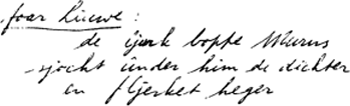 foar Liuwe:
de ljurk boppe Murns
sjocht ûnder him de dichter
en fljerket heger